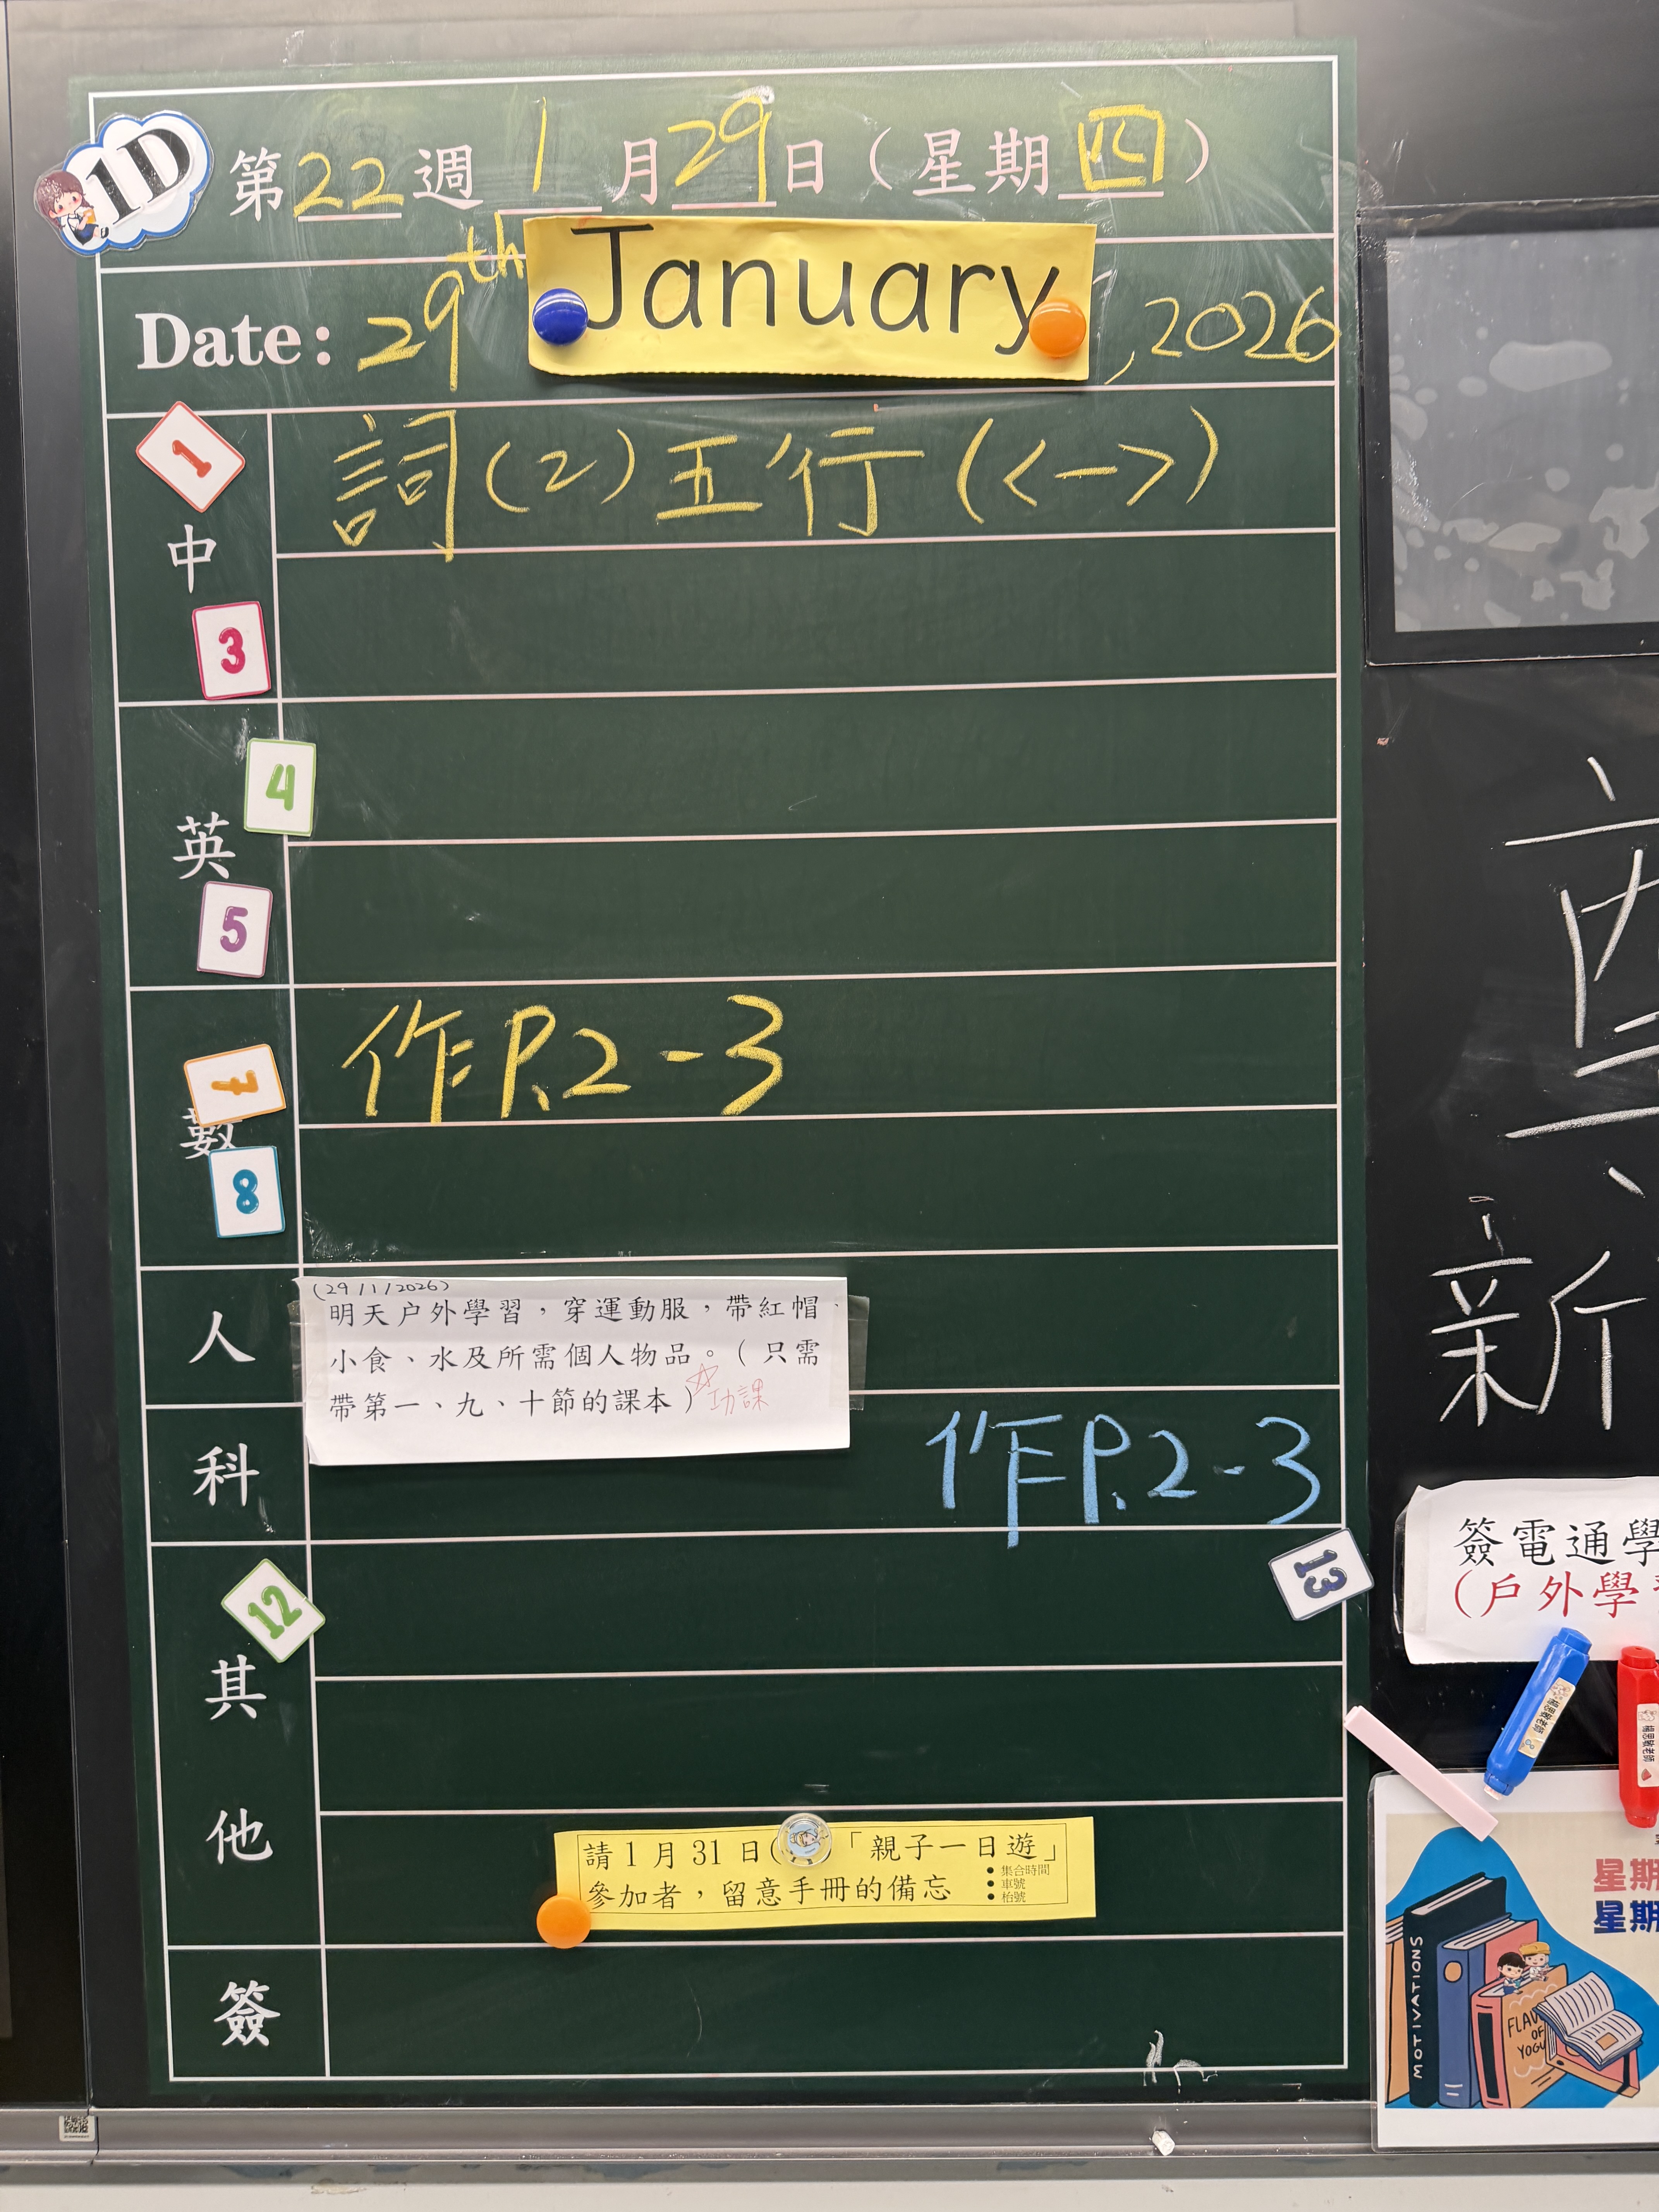 1D
第22週 1月29日（星期四）
Date: 29th January, 2026
1
詞(2)五行(<->)
中
3
4
英
5
作P.2-3
7
數
8
(29/1/2026)
明天户外學習，穿運動服，帶紅帽
小食、水及所需個人物品。（只需
帶第一、九、十節的課本）☆功課
人
科
作P.2-3
12
13
其
他
請1月31日(「親子一日遊」
參加者，留意手冊的備忘
● 集合時間
● 車號
● 枱號
簽
新
簽電通學
(戶外學
星期
星期
MOTIVATIONS
OF